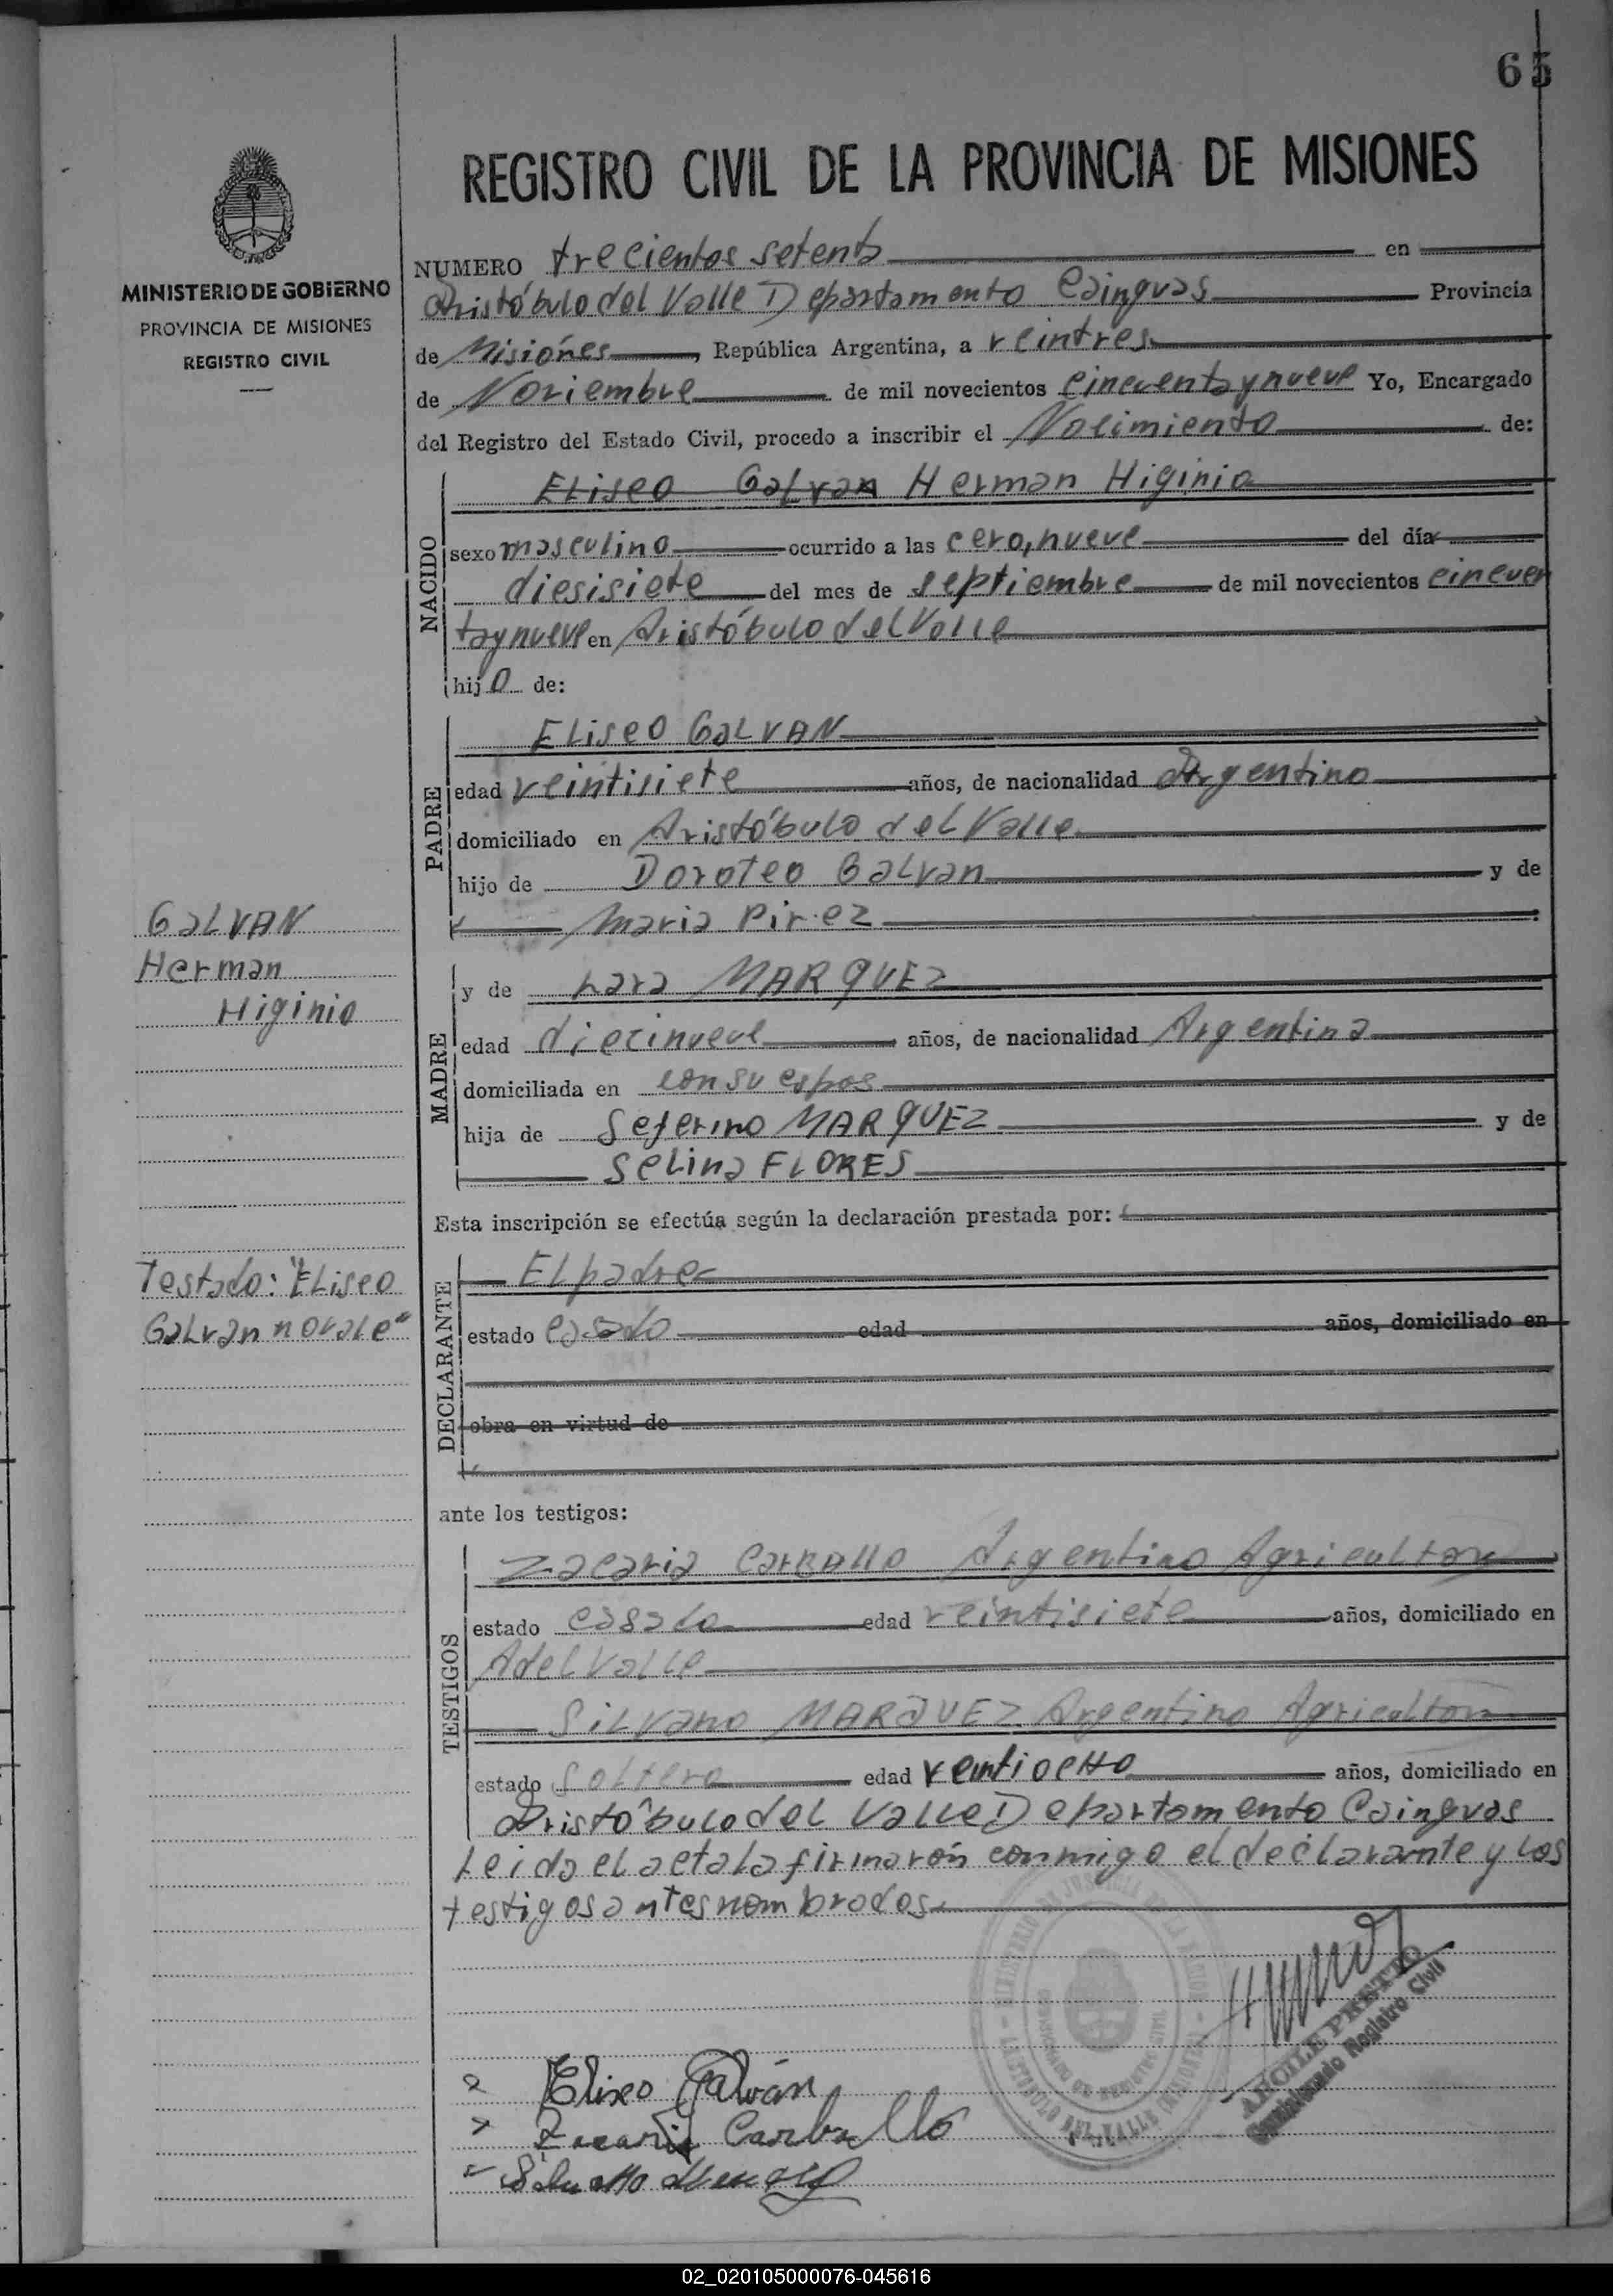 65
REGISTRO CIVIL DE LA PROVINCIA DE MISIONES
MINISTERIO DE GOBIERNO
PROVINCIA DE MISIONES
REGISTRO CIVIL
NUMERO trecientos setenta en
Aristóbulo del Valle Departamento Cainguas Provincia
de Misiónes, República Argentina, a veintres
de Noviembre de mil novecientos cincuentaynueve Yo, Encargado
del Registro del Estado Civil, procedo a inscribir el Nacimiento de:
NACIDO
Eliseo Galvan Herman Higinio
sexo masculino ocurrido a las cero, nueve del día
diesisiete del mes de septiembre de mil novecientos cincuen
taynueve en Aristóbulo del Valle
hijo de:
PADRE
Eliseo GALVAN
edad veintisiete años, de nacionalidad Argentino
domiciliado en Aristóbulo del Valle
hijo de Doroteo Galvan y de
Maria Pirez
GALVAN
Herman
Higinio
MADRE
y de Lara MARQUEZ
edad diecinueve años, de nacionalidad Argentina
domiciliada en con su espos
hija de Seferino MARQUEZ y de
Selina FLORES
Esta inscripción se efectúa según la declaración prestada por:
DECLARANTE
El padre
Testado: "Eliseo
Galvan novale"
estado casado edad años, domiciliado en
obra en virtud de
ante los testigos:
TESTIGOS
Zacaria Carballo Argentino Agricultor
estado casado edad veintisiete años, domiciliado en
A del Valle
Silvano MARQUEZ Argentino Agricultor
estado Soltero edad veintiocho años, domiciliado en
Aristóbulo del Valle Departamento Cainguas
Leida el acta la firmarón conmigo el declarante y los
testigos antes nombrados
Eliseo Galván
Zacaria Carballo
PRETTO
Registro Civil
02_020105000076-045616